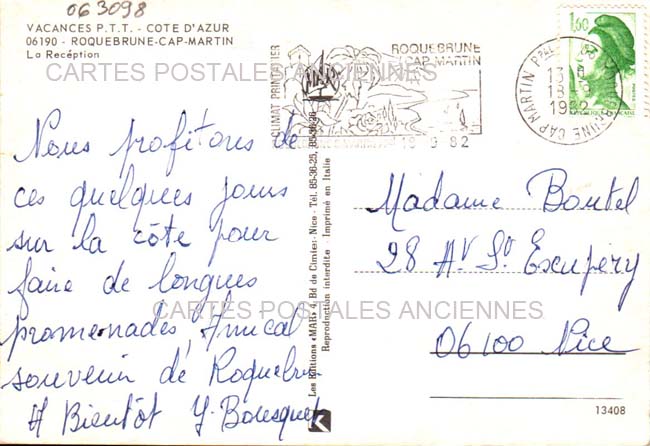 063098
VACANCES P.T.T. - COTE D'AZUR
06190 - ROQUEBRUNE-CAP-MARTIN
La Recéption
CARTES POSTALES ANCIENNES
CLIMAT PRINTANIER
ROQUEBRUNE
CAP MARTIN
CAP MARTIN PPAL
ROQUEBRUNE
13 H
18-6
1982
18 6 82
1,60
Nous profitons de
ces quelques jours
sur la côte pour
faire de longues
promenades, Amical
souvenir de Roquebrune
A Bientôt Y. Bousquet
Les Editions «MAR» 4, Bd de Cimiez - Nice - Tél. 85-36-25, 85-36-26
Reproduction interdite - Imprimé en Italie
Madame Boutel
28 Av St Exupéry
06100 Nice
CARTES POSTALES ANCIENNES
13408